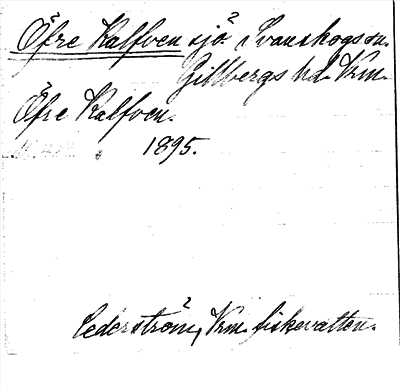 Öfre Kalfven sjö? Svanskogs sn.
Gillbergs hd. Vrm.
Öfre Kalfven.
1895.
Cederström, Vrm. fiskevatten.